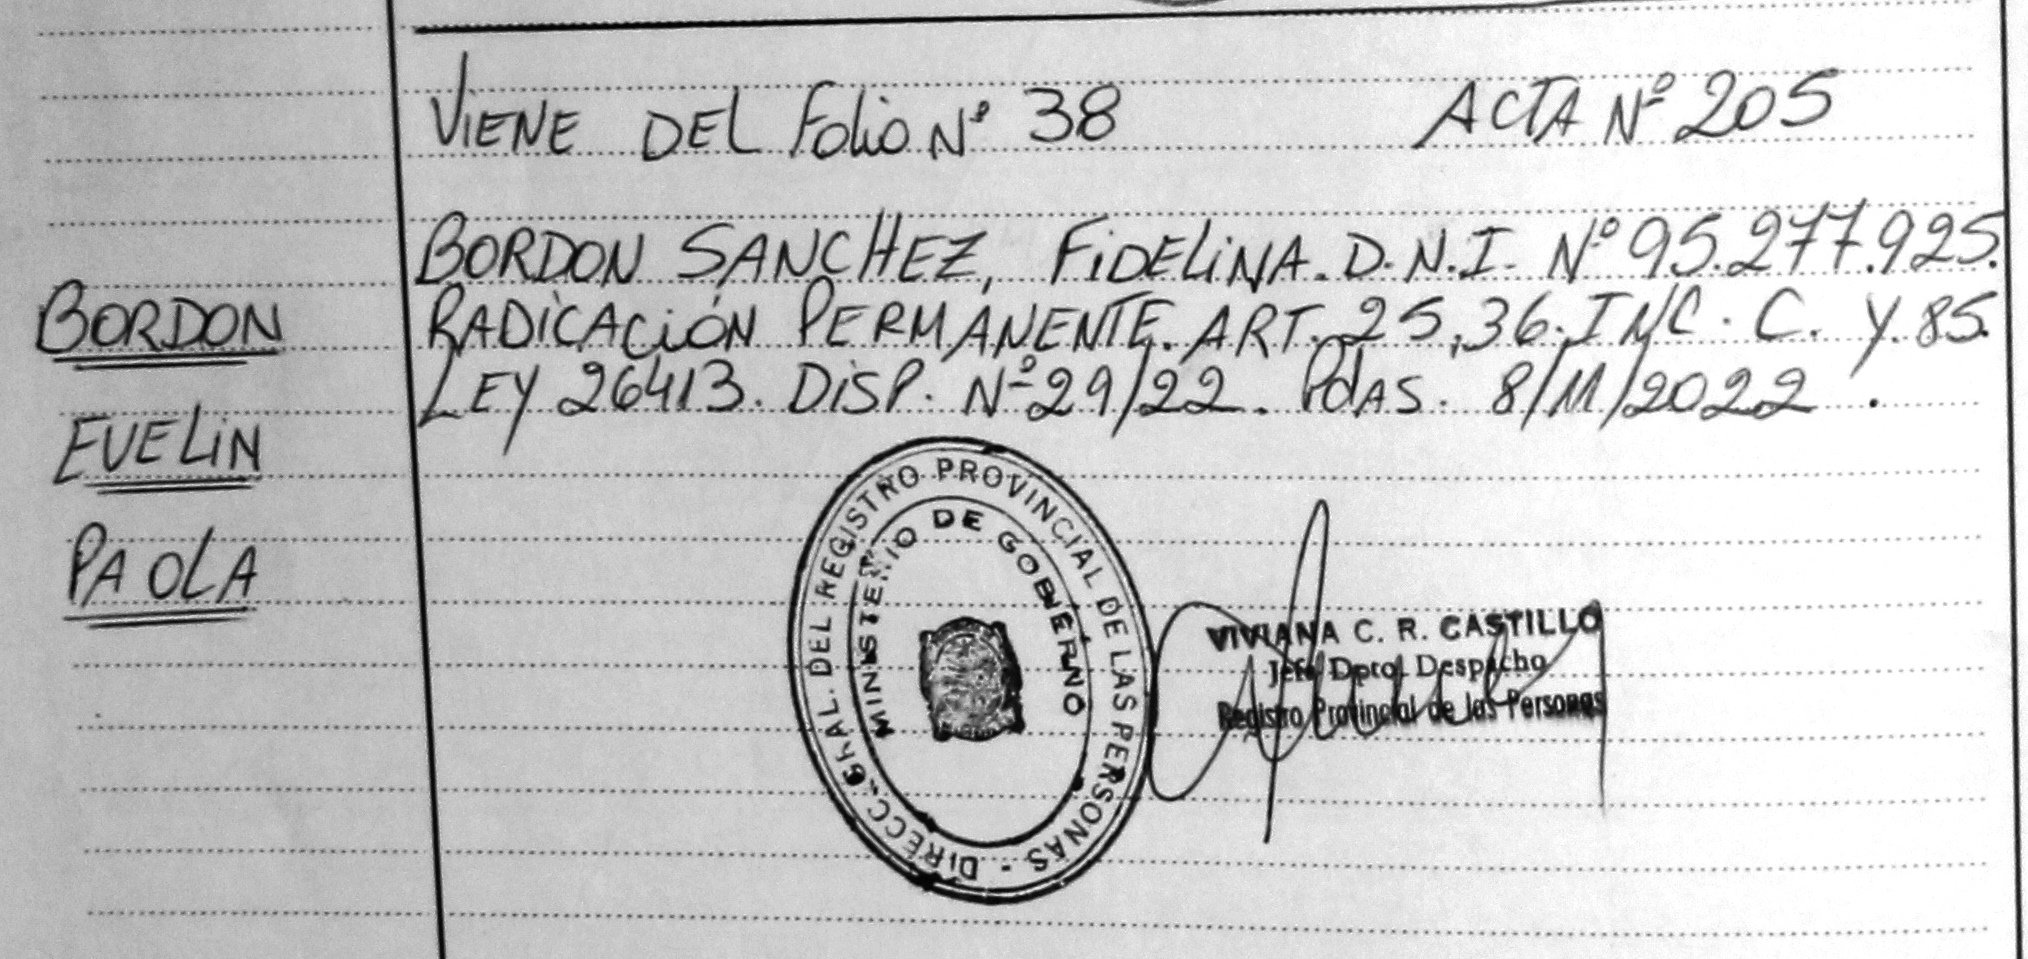 VIENE DEL FOLIO Nº 38 ACTA Nº 205
BORDON SANCHEZ, FIDELINA. D.N.I. Nº 95.277.925.
RADICACIÓN PERMANENTE. ART. 25,36. INC. C. Y. 85.
LEY 26413. DISP. Nº 29/22. PdAS. 8/11/2022.
BORDON
EVELIN
PAOLA
DIRECC. GRAL. DEL REGISTRO PROVINCIAL DE LAS PERSONAS -
MINISTERIO DE GOBIERNO
VIVIANA C. R. CASTILLO
Jefe Dpto. Despacho
Registro Provincial de las Personas